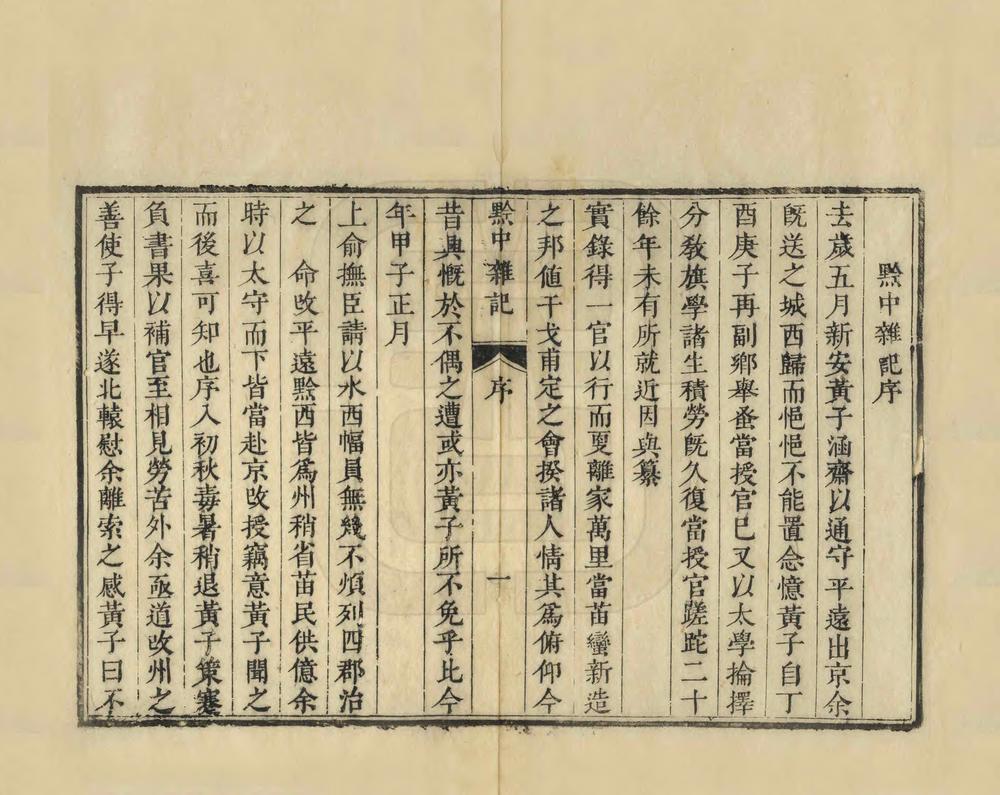 黔中雜記序
去歲五月新安黃子涵齋以通守平遠出京余
旣送之城西歸而悒悒不能置念憶黃子自丁
酉庚子再副鄉舉蚤當授官巳又以太學掄擇
分敎旗學諸生積勞旣久復當授官蹉跎二十
餘年未有所就近因與纂
實錄得一官以行而更離家萬里當苗蠻新造
之邦値干戈甫定之會揆諸人情其爲俯仰今
黔中雜記 序 一
昔興慨於不偶之遭或亦黃子所不免乎比今
年甲子正月
上俞撫臣請以水西幅員無幾不煩列四郡治
之 命改平遠黔西皆爲州稍省苗民供億余
時以太守而下皆當赴京改授竊意黃子聞之
而後喜可知也序入初秋毒暑稍退黃子策蹇
負書果以補官至相見勞苦外余亟道改州之
善使子得早遂北轅慰余離索之感黃子曰不